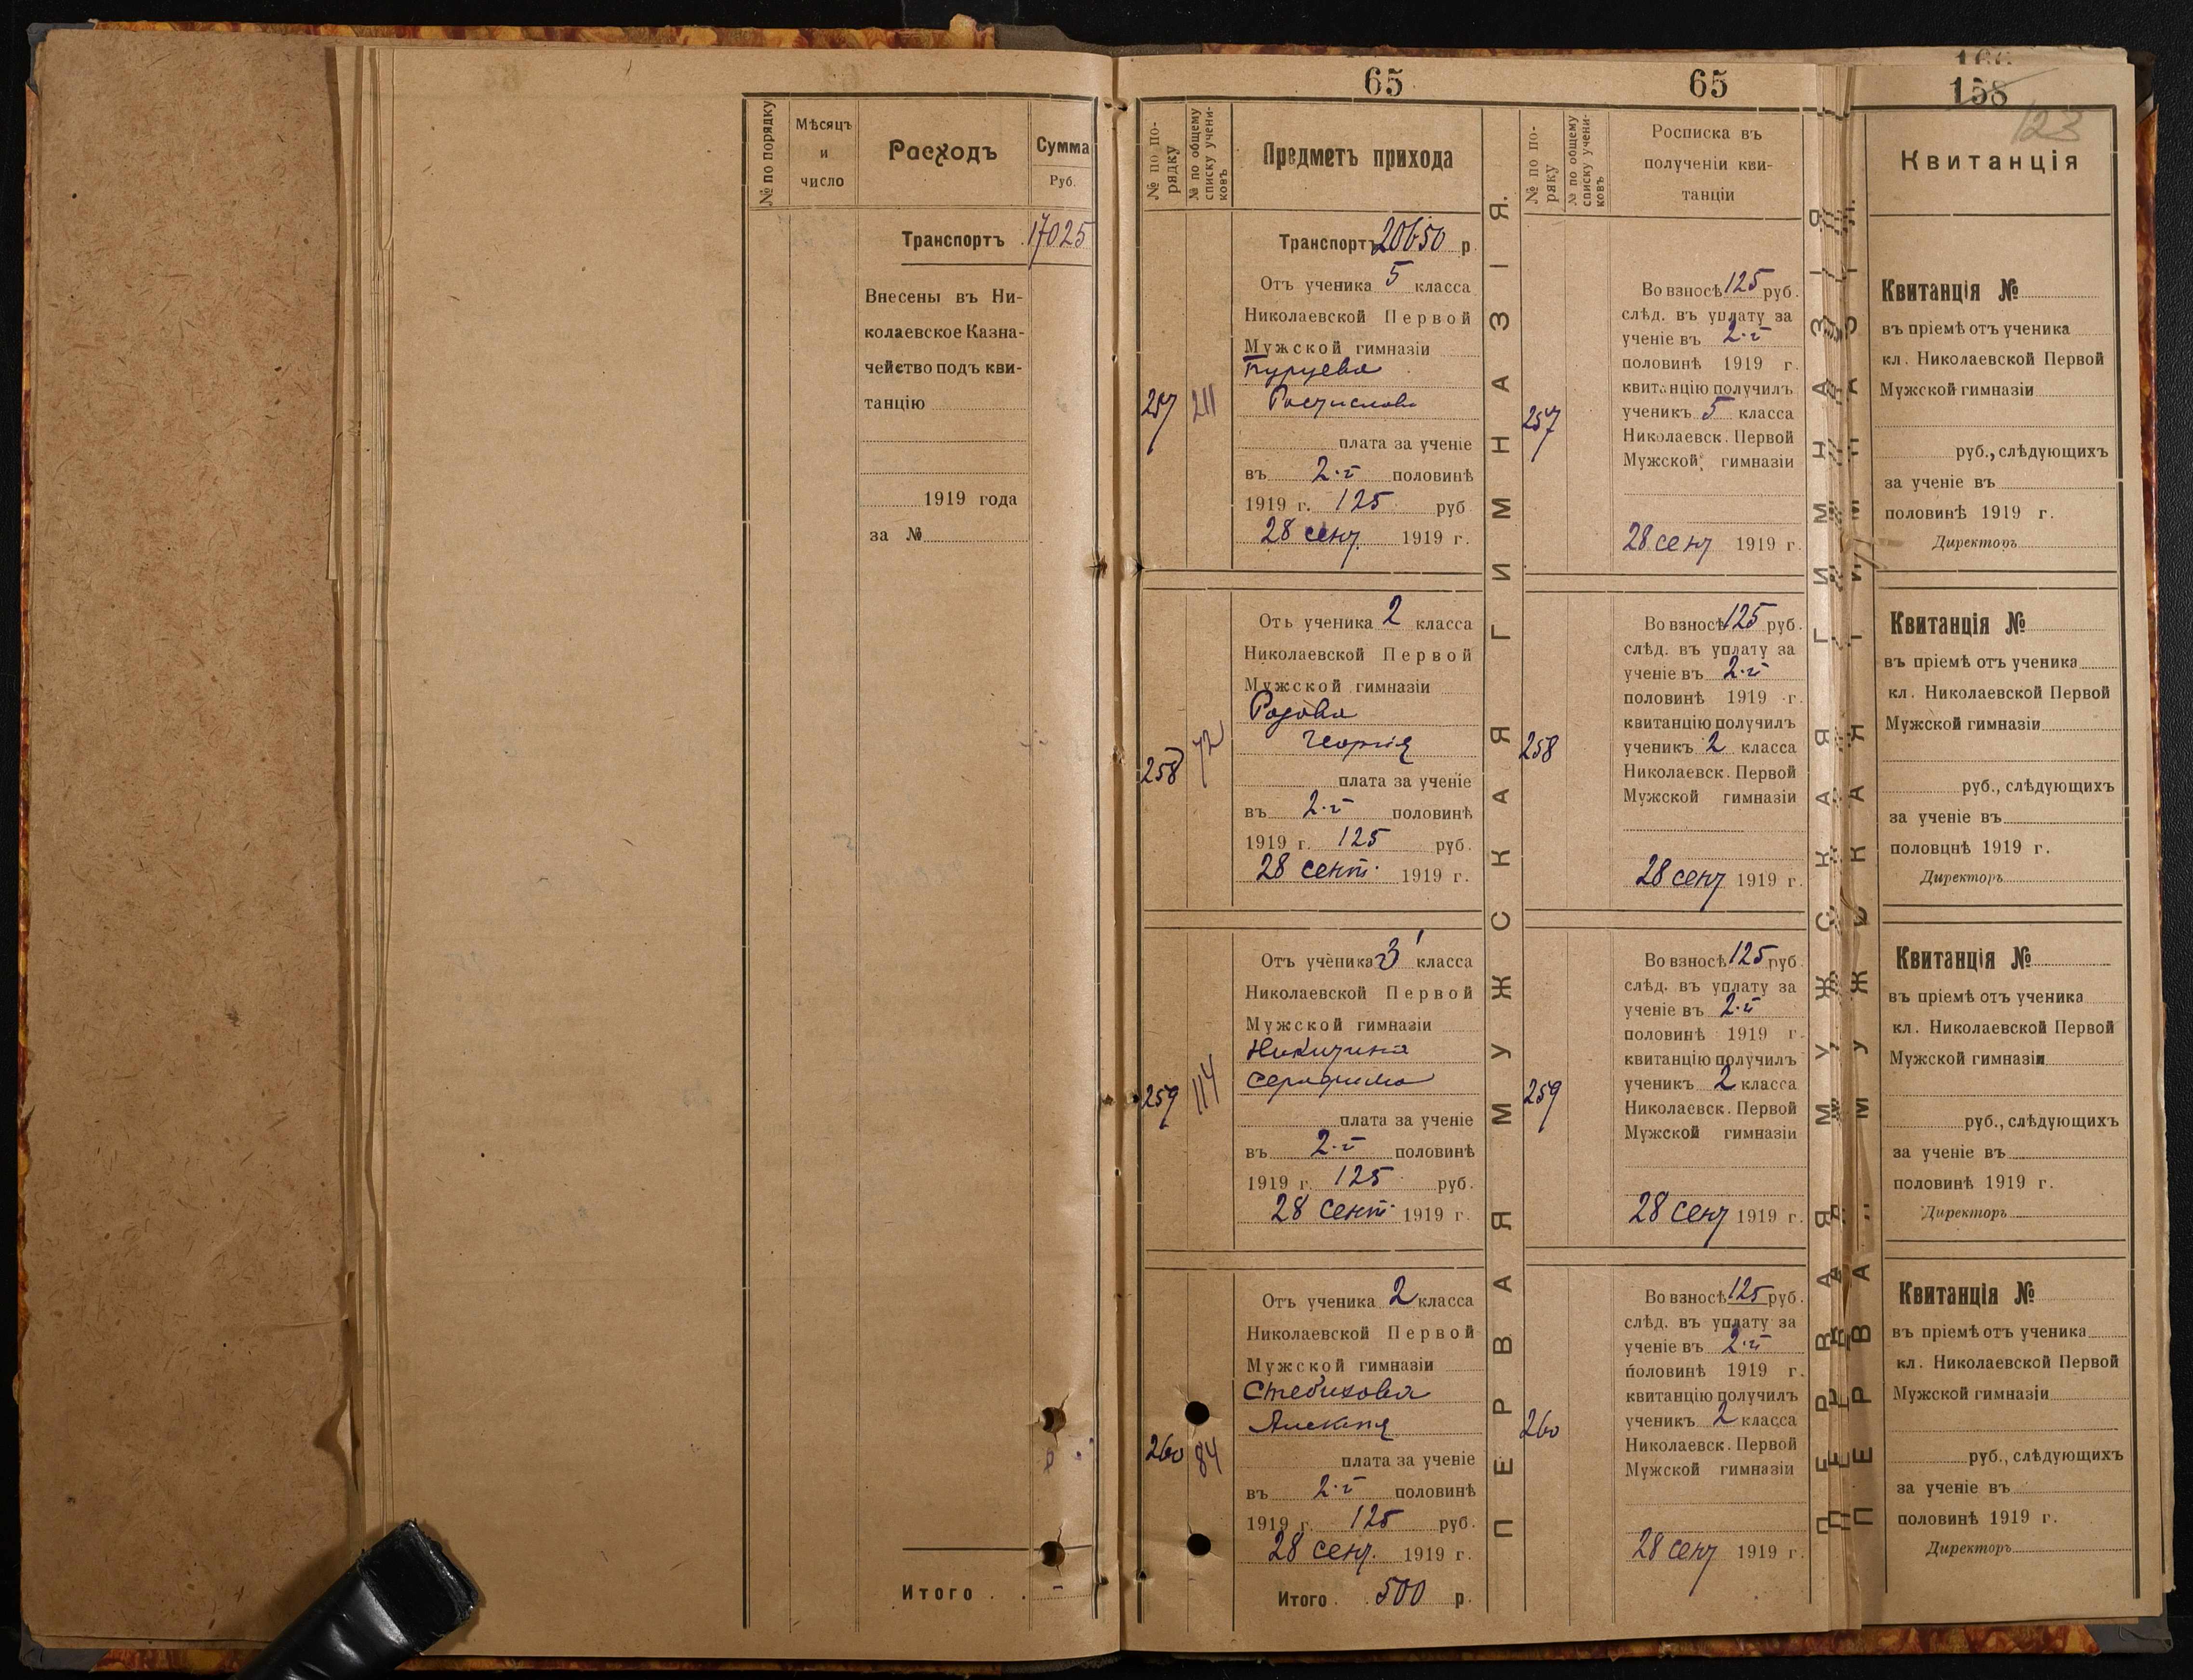 № по порядку
Мѣсяцъ
и
число
Расходъ
Сумма
Руб.
Транспортъ 17025
Внесены въ Ни-
колаевское Казна-
чейство подъ кви-
танцію
1919 года
за №
Итого
65
№ по по-
рядку
№ по общему
списку учени-
ковъ
Предметъ прихода
Транспортъ 20650 р.
257
211
Отъ ученика 5 класса
Николаевской Первой
Мужской гимназіи
Ростислава
плата за ученіе
въ 2-й половинѣ
1919 г. 125 руб
28 сент. 1919 г.
258
72
Отъ ученика 2 класса
Николаевской Первой
Мужской гимназіи
Розова
Георгія
плата за ученіе
въ 2-й половинѣ
1919 г. 125 руб.
28 сент. 1919 г.
259
114
Отъ ученика 3 класса
Николаевской Первой
Мужской гимназіи
Никитина
Серафима
плата за ученіе
въ 2-й половинѣ
1919 г. 125 руб.
28 сент. 1919 г.
260
84
Отъ ученика 2 класса
Николаевской Первой
Мужской гимназіи
Стебихова
Алексѣя
плата за ученіе
въ 2-й половинѣ
1919 г. 125 руб.
28 сент. 1919 г.
Итого 500 р.
ПЕРВАЯ МУЖСКАЯ ГИМНАЗІЯ.
65
№ по по-
ряку
№ по общему
списку учени-
ковъ
Росписка въ
полученіи кви-
танціи
257
Во взносѣ 125 руб.
слѣд. въ уплату за
ученіе въ 2-й
половинѣ 1919 г.
квитанцію получилъ
ученикъ 5 класса
Николаевск. Первой
Мужской гимназіи
28 сент 1919 г.
258
Во взносѣ 125 руб.
слѣд. въ уплату за
ученіе въ 2-й
половинѣ 1919 г.
квитанцію получилъ
ученикъ 2 класса
Николаевск. Первой
Мужской гимназіи
28 сент 1919 г.
259
Во взносѣ 125 руб
слѣд. въ уплату за
ученіе въ 2-й
половинѣ 1919 г.
квитанцію получилъ
ученикъ 2 класса
Николаевск. Первой
Мужской гимназіи
28 сент 1919 г.
260
Во взносѣ 125 руб.
слѣд. въ уплату за
ученіе въ 2-й
половинѣ 1919 г.
квитанцію получилъ
ученикъ 2 класса
Николаевск. Первой
Мужской гимназіи
28 сент 1919 г.
ПЕРВАЯ МУЖСКАЯ ГИМНАЗІЯ
166
158
123
Квитанція
Квитанція №
въ пріемѣ отъ ученика
кл. Николаевской Первой
Мужской гимназіи
руб., слѣдующихъ
за ученіе въ
половинѣ 1919 г.
Директоръ
Квитанція №
въ пріемѣ отъ ученика
кл. Николаевской Первой
Мужской гимназіи
руб., слѣдующихъ
за ученіе въ
половцнѣ 1919 г.
Директоръ
Квитанція №
въ пріемѣ отъ ученика
кл. Николаевской Первой
Мужской гимназіи
руб., слѣдующихъ
за ученіе въ
половинѣ 1919 г.
Директоръ
Квитанція №
въ пріемѣ отъ ученика
кл. Николаевской Первой
Мужской гимназіи
руб., слѣдующихъ
за ученіе въ
половинѣ 1919 г.
Директоръ